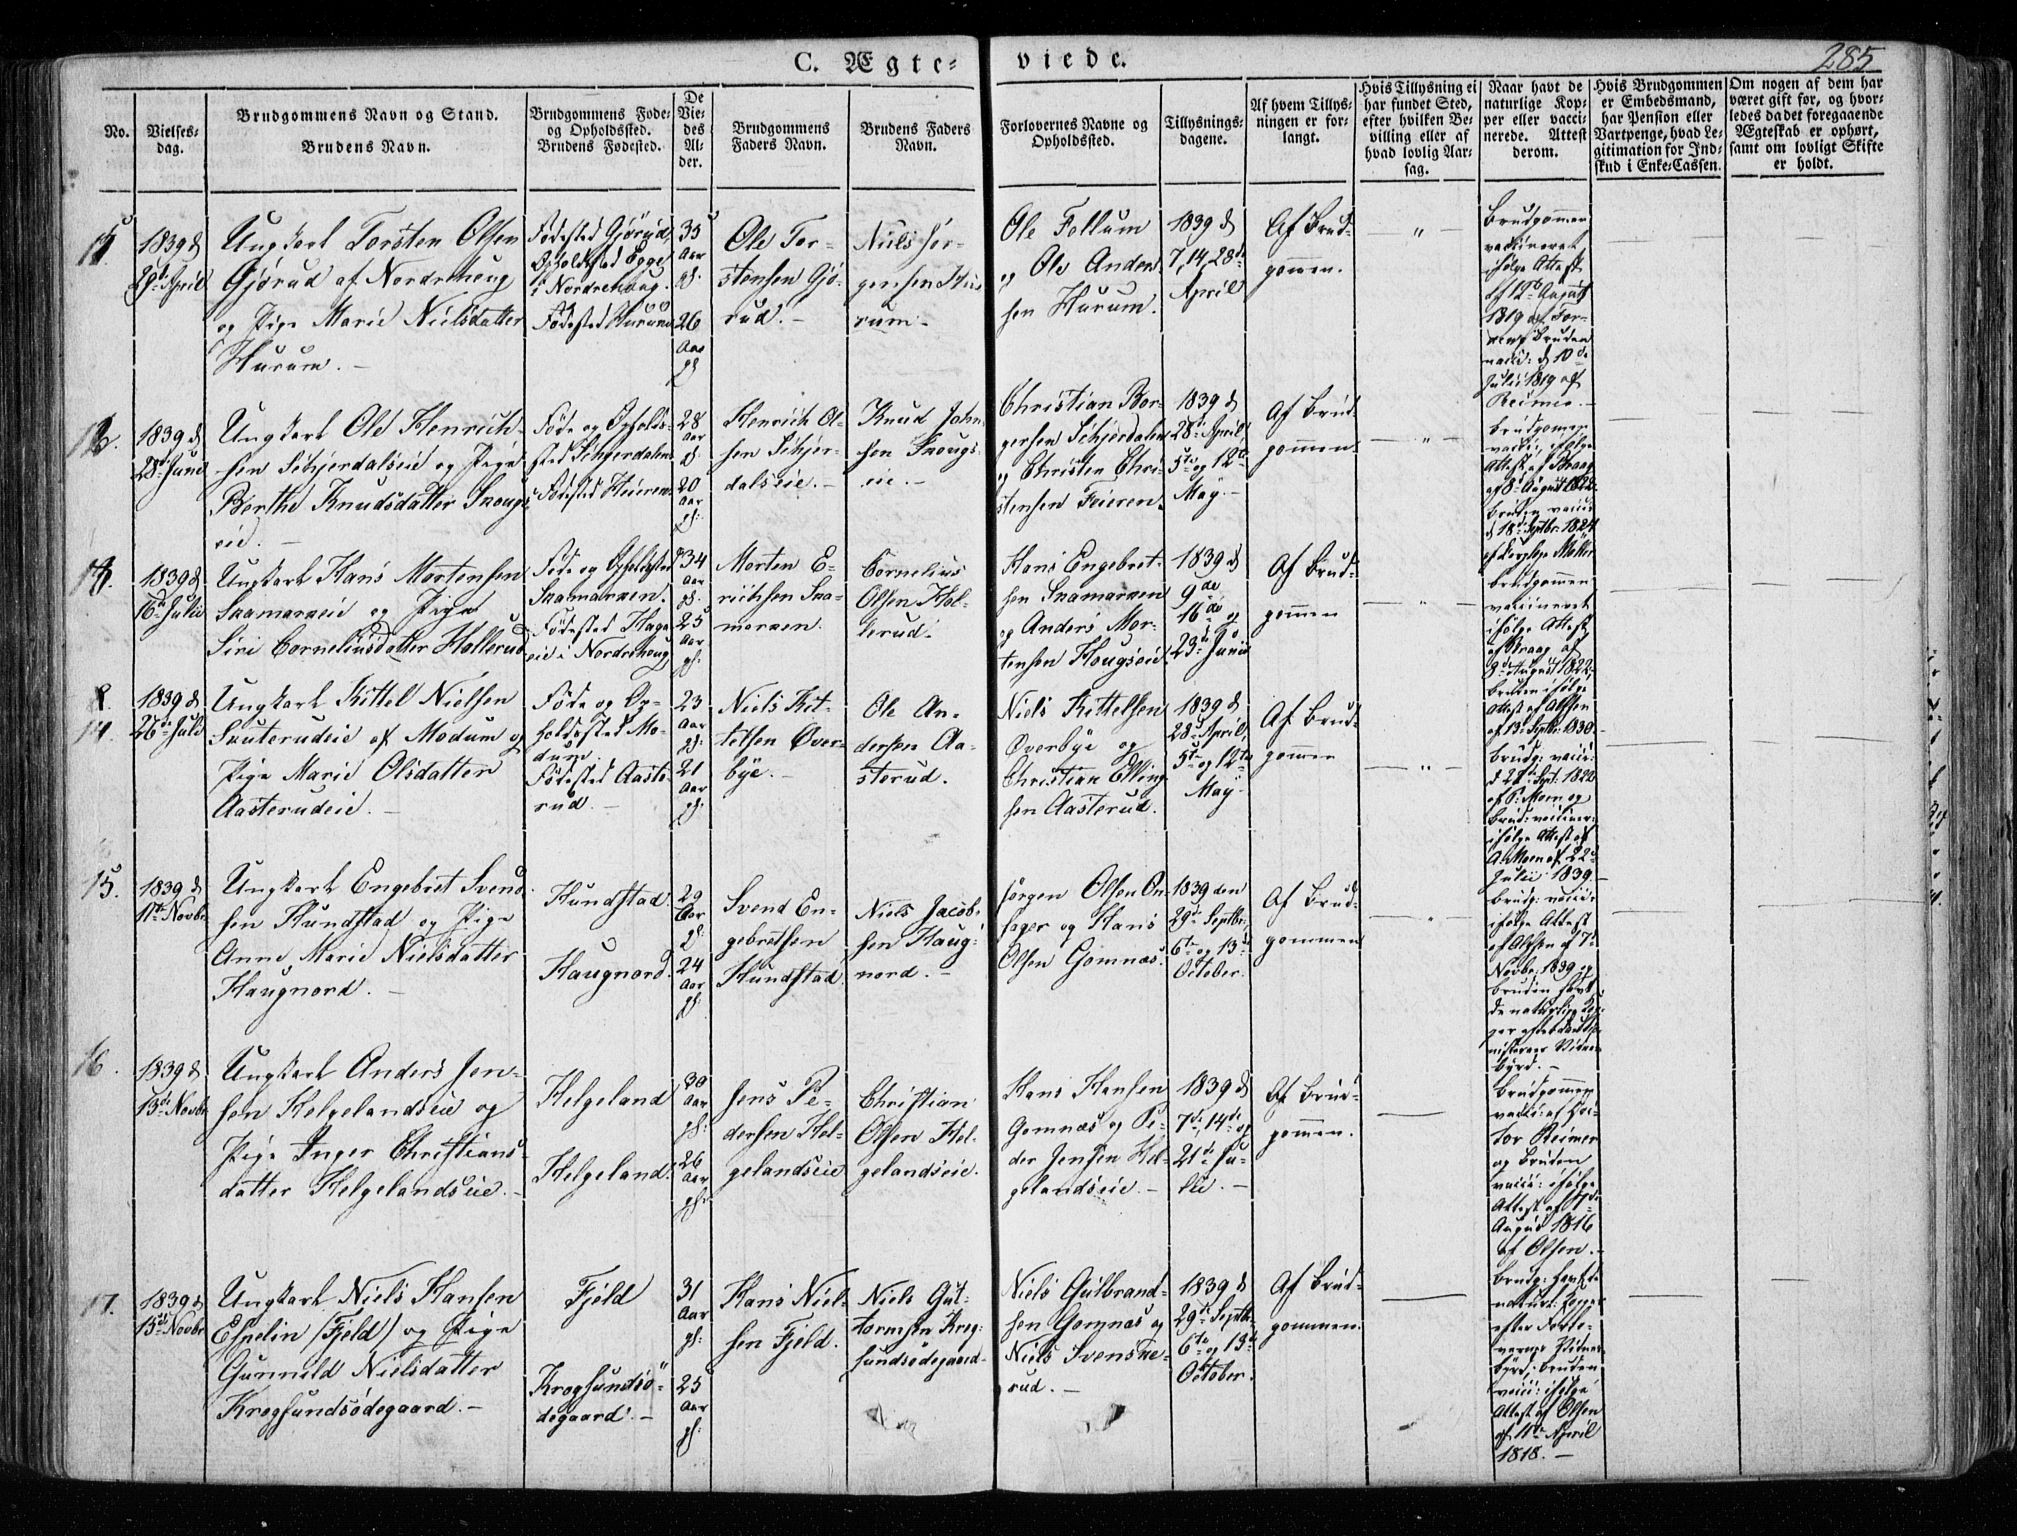 285
C. Ægte-viede.
No.
Vielses-
dag.
Brudgommens Navn og Stand.
Brudens Navn.
Brudgommens Føde-
og Opholdssted.
Brudens Fødested.
De
Vie-
des
Al-
der.
Brudgommens
Faders Navn.
Brudens Faders
Navn.
Forlovernes Navne og
Opholdssted.
Tillysnings-
dagene.
Af hvem Tillys-
ningen er for-
langt.
Hvis Tillysning ei
har fundet Sted,
efter hvilken Be-
villing eller af
hvad lovlig Aar-
sag.
Naar havt de
naturlige Kop-
per eller vacci-
nerede. Attest
derom.
Hvis Brudgommen
er Embedsmand,
har Pension eller
Vartpenge, hvad Le-
gitimation for Ind-
skud i Enke-Cassen.
Om nogen af dem har
været gift før, og hvor-
ledes da det foregaaende
Ægteskab er ophørt,
samt om lovligt Skifte
er holdt.
1839 d
29de April
Ungkarl Torsten Olsen
Gjørud af Nordrehoug
og Pige Marie Nielsdatter
Hurum.
Fødested Gjørud,
Opholdsted Egge
i Nordrehoug.
Fødested Hurum
35
Aar
gl.
26
Aar
gl
Ole Tor-
stensen Gjø-
rud.
Niels Jør-
gensen Hu-
rum
Ole Follum
og Ole Ander-
sen Hurum.
1839 d
7, 14, 28de
April
Af Brud-
gommen.
"
Brudgommen
vaccineret
ifølge Attest
af 12te August
1819 af
Bruden
vacci: d 10de
Julii 1819 af
Reimer.
12.
1839 d
28de Juni
Ungkarl Ole Henrich-
sen Sihjerdalseie og Pige
Berthe Knudsdatter Snougs
eie.
Føde og Opholds-
sted Sihjerdalen
Fødested Heieren
28
Aar
gl.
20
Aar
gl.
Henrich Ol-
sen Sihjer-
dalseie.
Knud John-
sen Snougs-
eie.
Christian Bor-
gersen Sihjerdalen
og Christen Chri-
stensen Feieren.
1839 d
28de April,
5te og 12te
May.
Af Brud-
gommen.
"
Brudgommen
vacci: ifølge
Attest af Kraag
af 8de August 1822.
Bruden vacci:
d 18de Septbr: 1824
af Møller
13.
1839 d
16de Julii
Ungkarl Hans Mortensen
Snamarneie og Pige
Siri Corneliusdatter Hollerud
Føde og Opholdsted
Snamarnen.
Fødested Haga
eie i Nordrehoug
34
Aar
gl.
25
Aar
gl:
Morten E-
richsen Sna-
mornen.
Cornelius
Olsen Hol-
lerud.
Hans Engebret-
sen Snamarnen
og Anders Mor-
tensen Hougseie.
1839 d
9de
16de og
23de Junii
Af Brud-
gommen
"
Brudgommen
vaccineret
ifølge Attest
af Kraag af
9de August 1822.
Bruden ifølge
Attest af Olsen
af 13de Septbr: 1830.
8.
14.
1839 d
26de Juli
Ungkarl Kittel Nielsen
Snuterudeie af Modum og
Pige Marie Olsdatter
Aasterudeie.
Føde og Op-
holdssted Mo-
dum.
Fødested Aaste-
rud.
23
Aar
gl.
21
Aar
gl.
Niels Kit-
telsen Over-
bye.
Ole An-
dersen Aa-
sterud.
Niels Kittelsen
Overbye og
Christian Elling-
sen Aasterud.
1839 d
28de April,
5te og 12te
May.
Af Brud-
gommen
"
Brudg: vacci:
d 28de Sept: 1820
af P. Moen og
Brud: vacciner:
ifølge Attest af
A. Moen af 22de
Julii 1839.
15.
1839 d
11te Novbr
Ungkarl Engebret Svend-
sen Hundstad og Pige
Anne Marie Nielsdatter
Haugnord.
Hundstad
Haugnord.
29
Aar
gl.
24
Aar
gl.
Svend En-
gebretsen
Hundstad
Niels Jacob-
sen Haug-
nord.
Jørgen Olsen On-
sager og Hans
Olsen Gomnæs.
1839 den
29de Septbr:
6te og 13de
October.
Af Brud-
gommen
"
Brudg: vacci:
ifølge Attest
af Olsen af 7de
Novbr: 1839 og
Bruden havt
de naturlige Kop-
per efter
Vidnes-
byrd.
16.
1839 d
13de Novbr
Ungkarl Anders Jen-
sen Helgelandseie og
Pige Inger Christians-
datter Helgelandseie.
Helgeland
Helgeland.
30
Aar
gl:
26
Aar
gl:
Jens Pe-
dersen Hel-
gelandseie
Christian
Olsen Hel-
gelandseie.
Hans Hansen
Gomnæs og Pe-
der Jensen Hel-
gelandseie.
1839 d
7de, 14de og
21de Ju-
lii.
Af Brud-
gommen.
Brudgommen
vacci: af Doc-
tor Reimer
og Bruden
vacci: ifølge
Attest af 17de
August 1816
af Olsen.
17.
1839 d
15de Novbr
Ungkarl Niels Hansen
Espelin (Fjeld) og Pige
Gunnild Nielsdatter
Krogsundsødegaard.
Fjeld
Krogsundsø-
degaard.
31
Aar
gl:
25
Aar
gl:
Hans Niel-
sen Fjeld.
Niels Gut-
tormsen Krog-
sundsødegaard.
Niels Gulbrand-
sen Gomnæs og
Niels Svenske-
rud.
1839 d
29de Septbr
6te og 13de
October.
Af Brud-
gommen.
Brudg: havt de
naturl: Kopper
efter Forlo-
vernes Vidnes-
byrd; Bruden
vacci: ifølge
Attest af Olsen
af 11te April
1818.